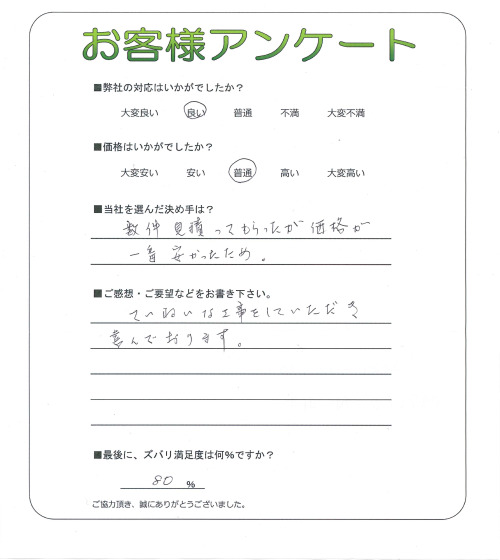 お客様アンケート
■弊社の対応はいかがでしたか？
大変良い 良い 普通 不満 大変不満
■価格はいかがでしたか？
大変安い 安い 普通 高い 大変高い
■当社を選んだ決め手は？
数件見積ってもらったが価格が
一番安かったため。
■ご感想・ご要望などをお書き下さい。
ていねいな工事をしていただき
喜んでおります。
■最後に、ズバリ満足度は何％ですか？
80 ％
ご協力頂き、誠にありがとうございました。